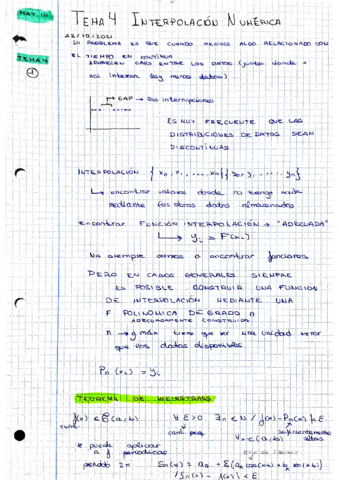 MAT. III
TEMA 4 INTERPOLACIÓN NUMÉRICA
22/10/2021
TEMA 4
①
SU PROBLEMA ES QUE CUANDO MEDIMOS ALGO RELACIONADO CON
EL TIEMPO EN CONTINUA
APARECEN GAPS ENTRE LOS DATOS (puntos donde
nos interesa hay menos datos)
GAP → las interrupciones
ES MUY FRECUENTE QUE LAS
DISTRIBUCIONES DE DATOS SEAN
DISCONTINUAS
INTERPOLACIÓN { x₀, x₁, ... xₙ } { y₀, y₁, ..... yₙ }
↳ encontrar valores donde no tengo nada
mediante los otros datos almacenados
Encontrar FUNCIÓN INTERPOLACIÓN → "ADECUADA"
↳ yᵢ = F(xᵢ)
No siempre vamos a encontrar funciones
PERO EN CASOS GENERALES SIEMPRE
ES POSIBLE CONSTRUIR UNA FUNCION
DE INTERPOLACIÓN MEDIANTE UNA
F POLINÓMICA DE GRADO n
ADECUADAMENTE CONSTRUIDA
n → g máx tiene que ser una unidad menor
que los datos disponibles
Pₙ (xᵢ) = yᵢ
TEOREMA DE WEIRSTRASS
f(x) ∈ C(a,b) ∀ E>0 ∃n ∈ N / |f(x) - Pₙ(x)| < E
cont. cant. peq suficientemente
∀x ∈ (a,b) altas
* puede aplicar
a f periodicas
periodo 2π Sₙ(x) = a₀ + Σ(aₙ cos(nx) + bₙ sen(nx))
|Sₙ(x) - f(x)| < E